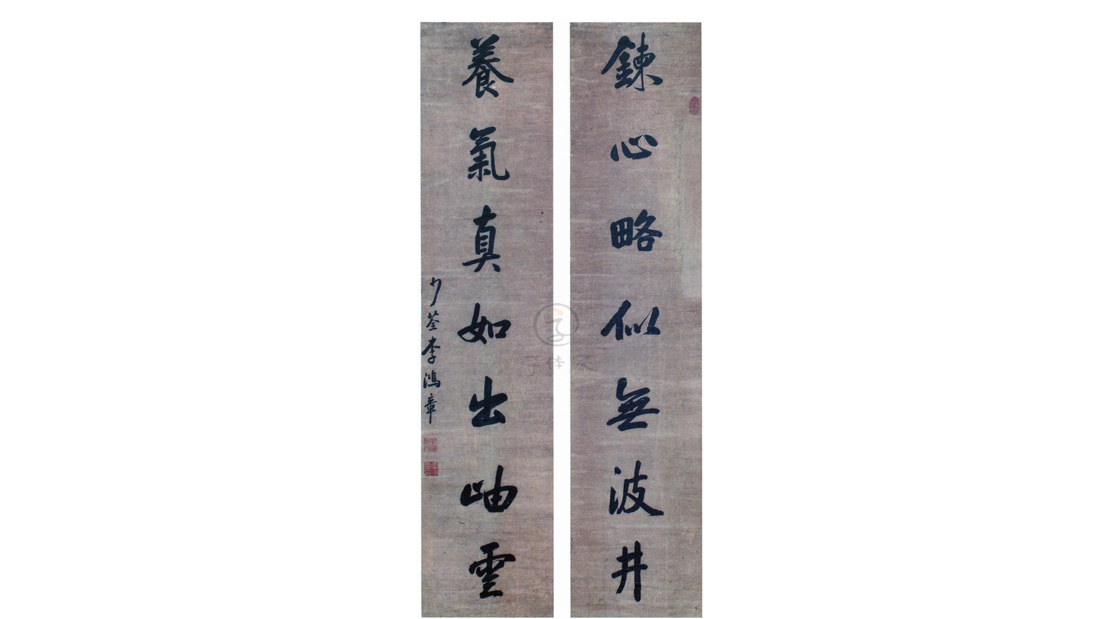 鍊心略似無波井
養氣真如出岫雲
少荃李鴻章